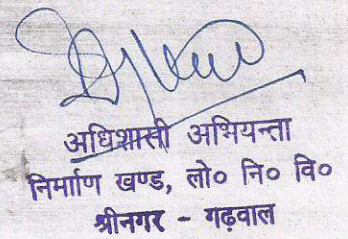 अधिशासी अभियन्ता
निर्माण खण्ड, लो० नि० वि०
श्रीनगर - गढ़वाल